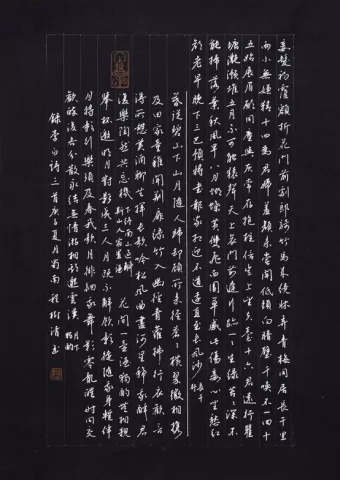 妾髮初覆額折花門前劇郎騎竹馬來繞床弄青梅同居長干里
兩小無嫌猜十四為君婦羞顏未嘗開低頭向暗壁千喚不一回十
五始展眉願同塵與灰常存抱柱信豈上望夫臺十六君遠行瞿
塘灩澦堆五月不可觸猿聲天上哀門前遲行跡一一生綠苔苔深不
能掃落葉秋風早八月蝴蝶黃雙飛西園草感此傷妾心坐愁紅
顏老早晚下三巴預將書報家相迎不道遠直至長風沙 長干行
暮從碧山下山月隨人歸卻顧所來徑蒼蒼橫翠微相攜
及田家童稚開荊扉綠竹入幽徑青蘿拂行衣歡言
得所憩美酒聊共揮長歌吟松風曲盡河星稀我醉君
復樂陶然共忘機 下終南山過斛斯山人宿置酒 花間一壺酒獨酌無相親
舉杯邀明月對影成三人月既不解飲影徒隨我身暫伴
月將影行樂須及春我歌月徘徊我舞影零亂醒時同交
歡醉後各分散永結無情遊相期邈雲漢 月下獨酌
錄李白詩三首庚夏月蜀南程樹清書